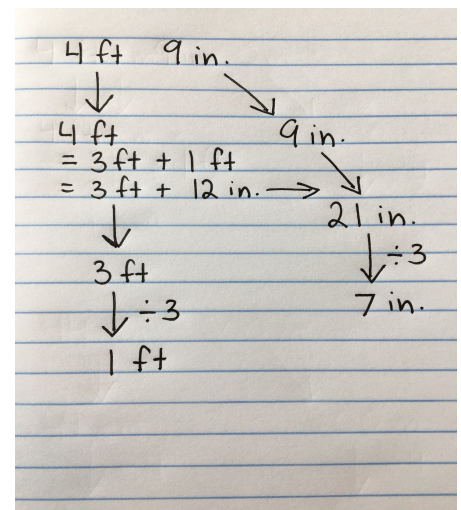 4 ft 9 in.
4 ft 9 in.
= 3 ft + 1 ft
= 3 ft + 12 in. → 21 in.
÷3
3 ft 7 in.
÷3
1 ft